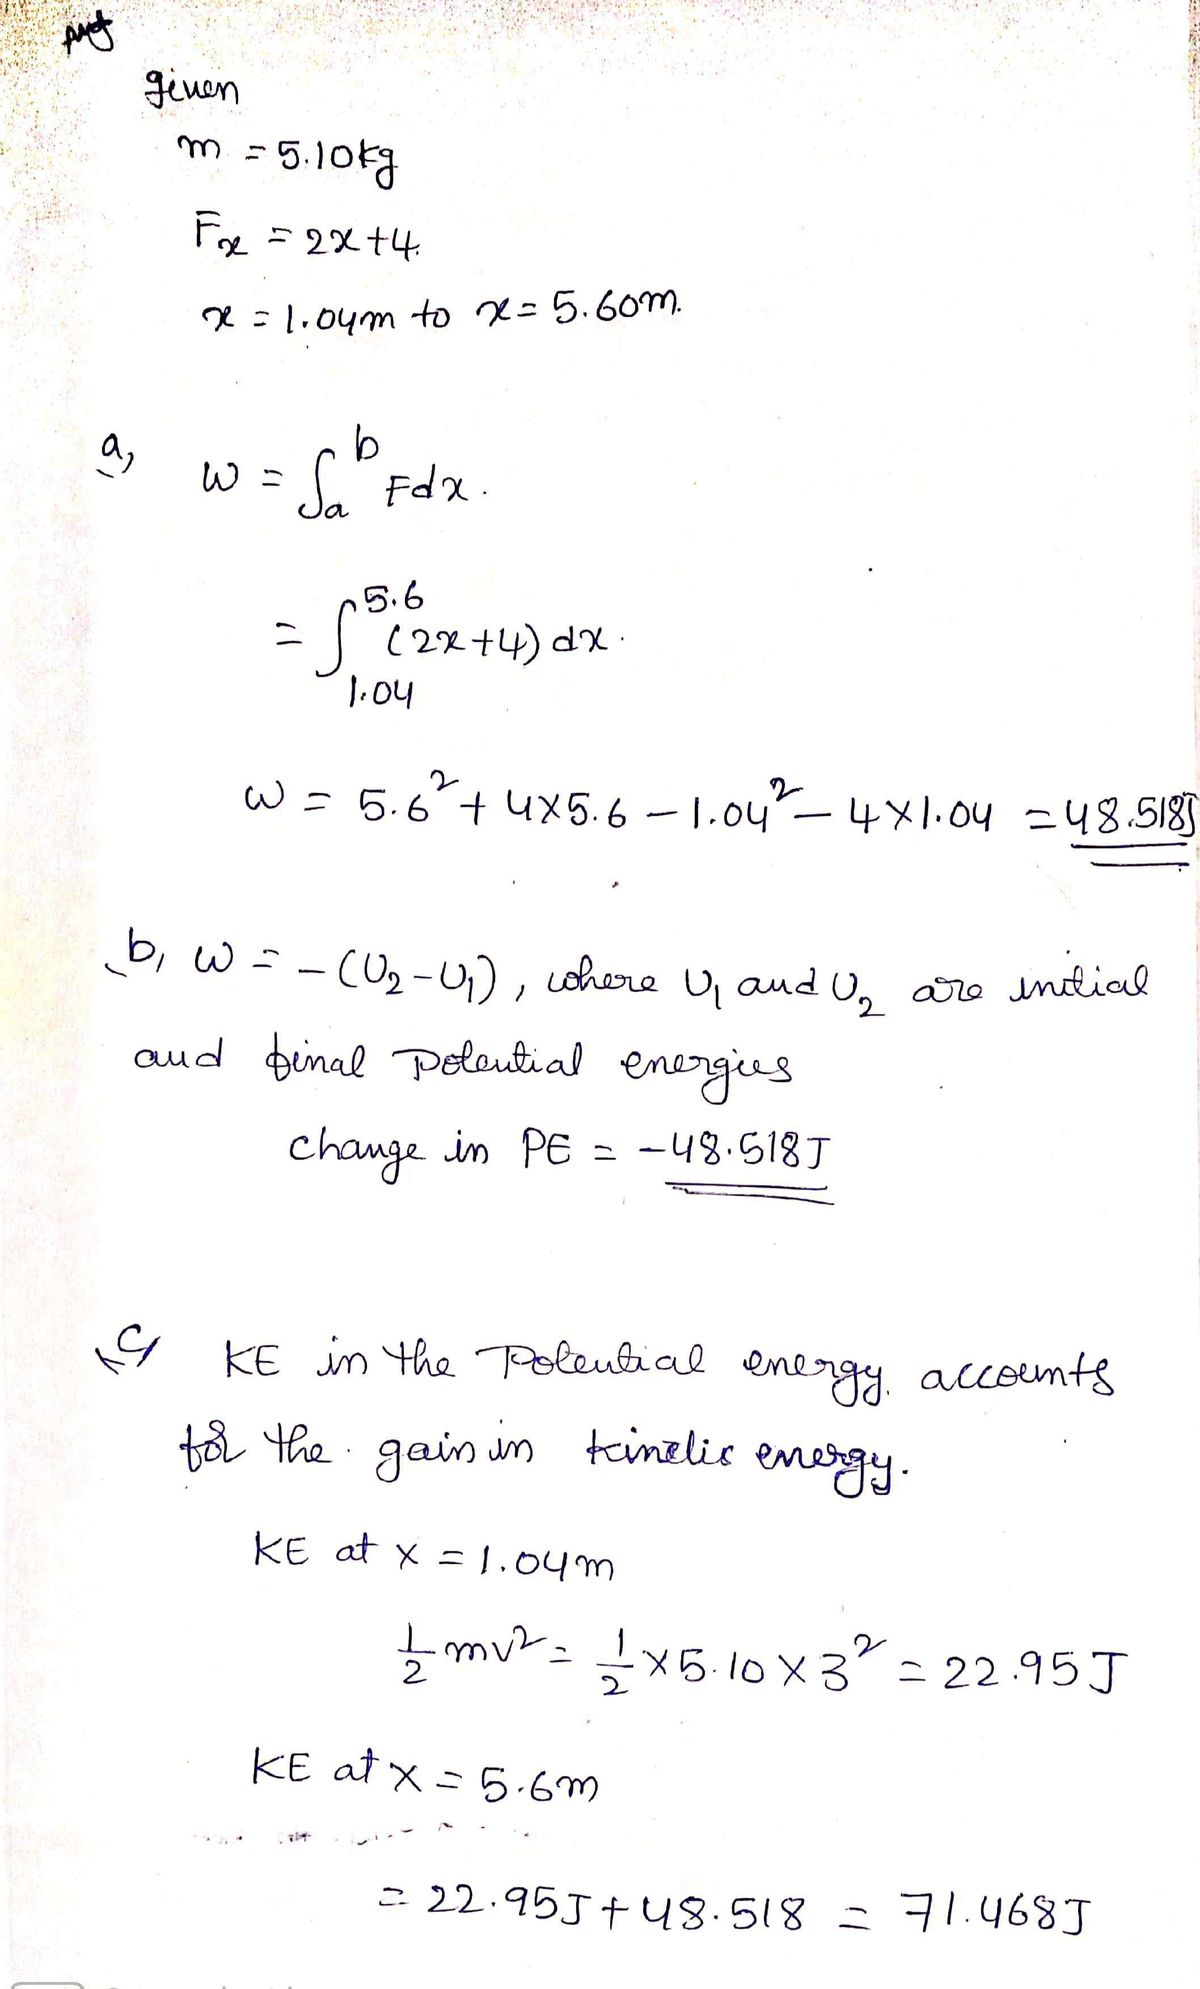 given
m = 5.10kg
Fx = 2x+4.
x = 1.04m to x = 5.60m.
a, W = ∫ₐᵇ Fdx.
= ∫₁.₀₄^5.6 (2x+4) dx.
W = 5.6² + 4×5.6 − 1.04² − 4×1.04 = 48.518J
b, W = −(U₂−U₁), where U₁ and U₂ are initial
and final Potential energies
change in PE = −48.518J
c, KE in the Potential energy. accounts
for the gain in kinetic energy.
KE at x = 1.04m
½ mv² = ½ × 5.10 × 3² = 22.95 J
KE at x = 5.6m
= 22.95J + 48.518 = 71.468J